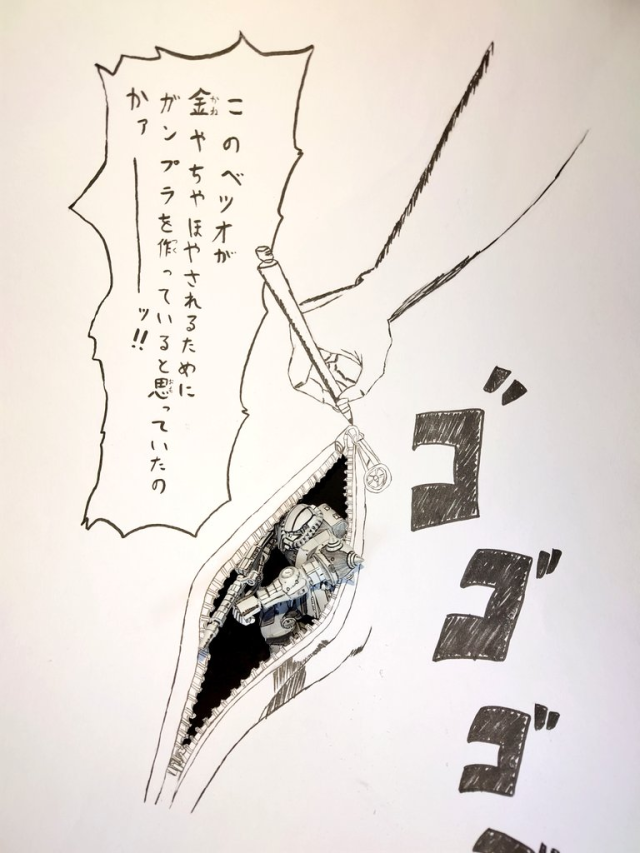 このベツオが
金やちやほやされるために
ガンプラを作っていると思っていたの
かァーーッ!!
かね
つく
おも
ゴ
ゴ
ゴ